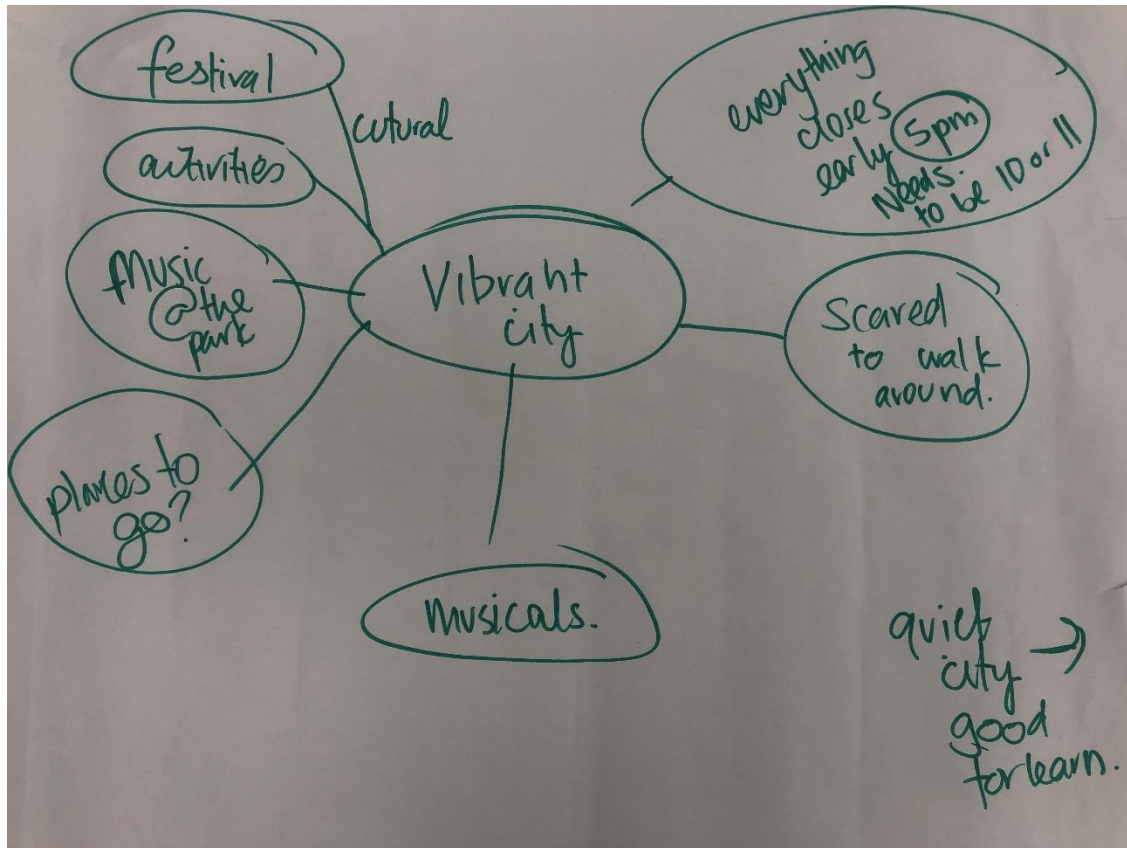 festival
cutural
activities
Music
@the
park
places to
go?
Vibrant
city
musicals.
everything
closes
early 5pm
Needs.
to be 10 or 11
Scared
to walk
around.
quiet
city →
good
for learn.